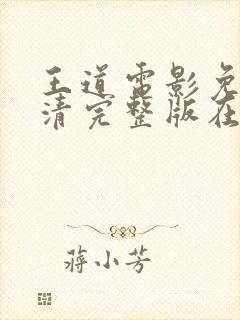 王道电影免
清完整版在
蒋小芳